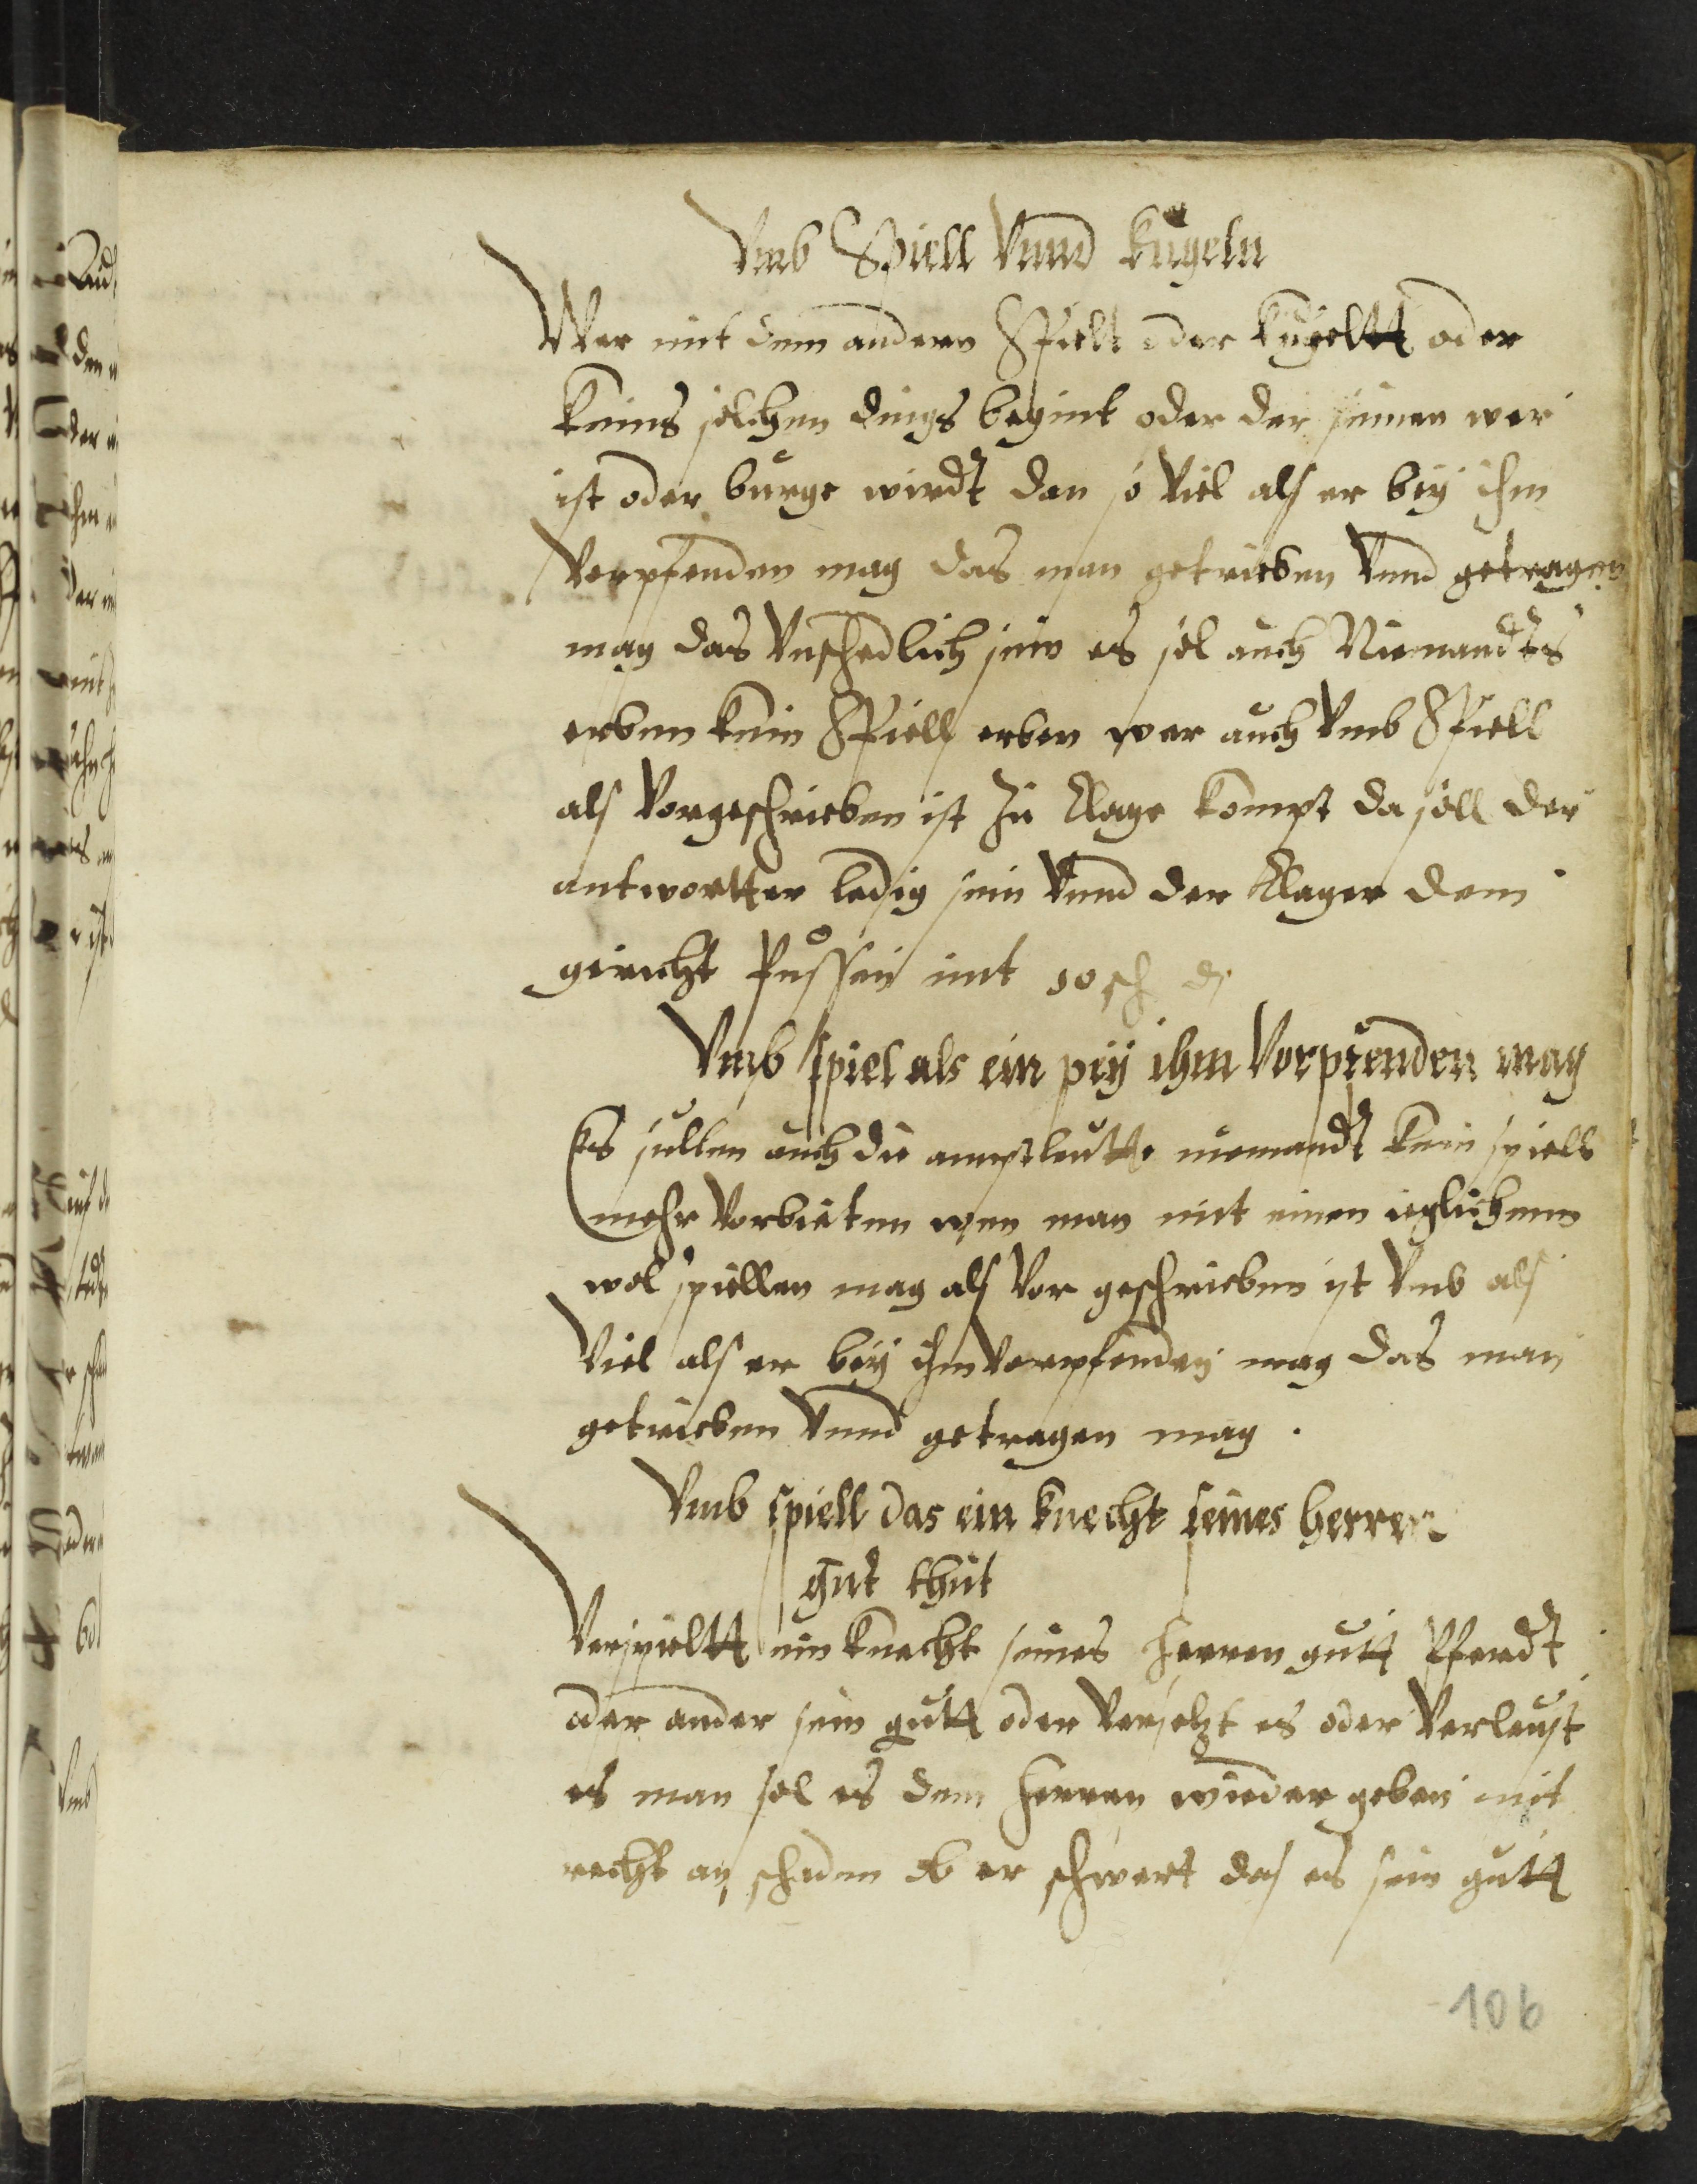 Vmb Spiell Vnnd kugeln
Wer mit dem andern Spielt oder kugeltt oder
keins solchen dings begint oder der seinen wer
ist oder burge wirdt dan so viel als er bey ihm
Verpfenden mag das man getrieben Vnnd getragen
mag das Vnschedlich sein es sol auch Niemandts
erben kein Spiell erben wer auch Vmb Spiell
als Vorgeschrieben ist zu klage kompt da soll der
antwortter ledig sein Vnnd der klager dem
gericht pussen mit 10 sch d
Vmb spiel als ein pey ihm Vorpfenden mag
Es sullen auch die amptleutte niemandt kein spiell
mehr Vorbieten wen man mit einen ieglichenn
wol spiellen mag als Vor geschrieben ist Vmb als
Viel als er bey ihm Verpfenden mag das man
getrieben Vnnd getragen mag .
Vmb spiell das ein knecht seines herren
gut thut
Verspieltt ein knecht seines herren gutt Pferdt
oder ander sein gutt oder Versetzt es oder Verleust
es man sol es dem herren wieder geben mit
recht an schaden ob er schwert das es sein gutt
106